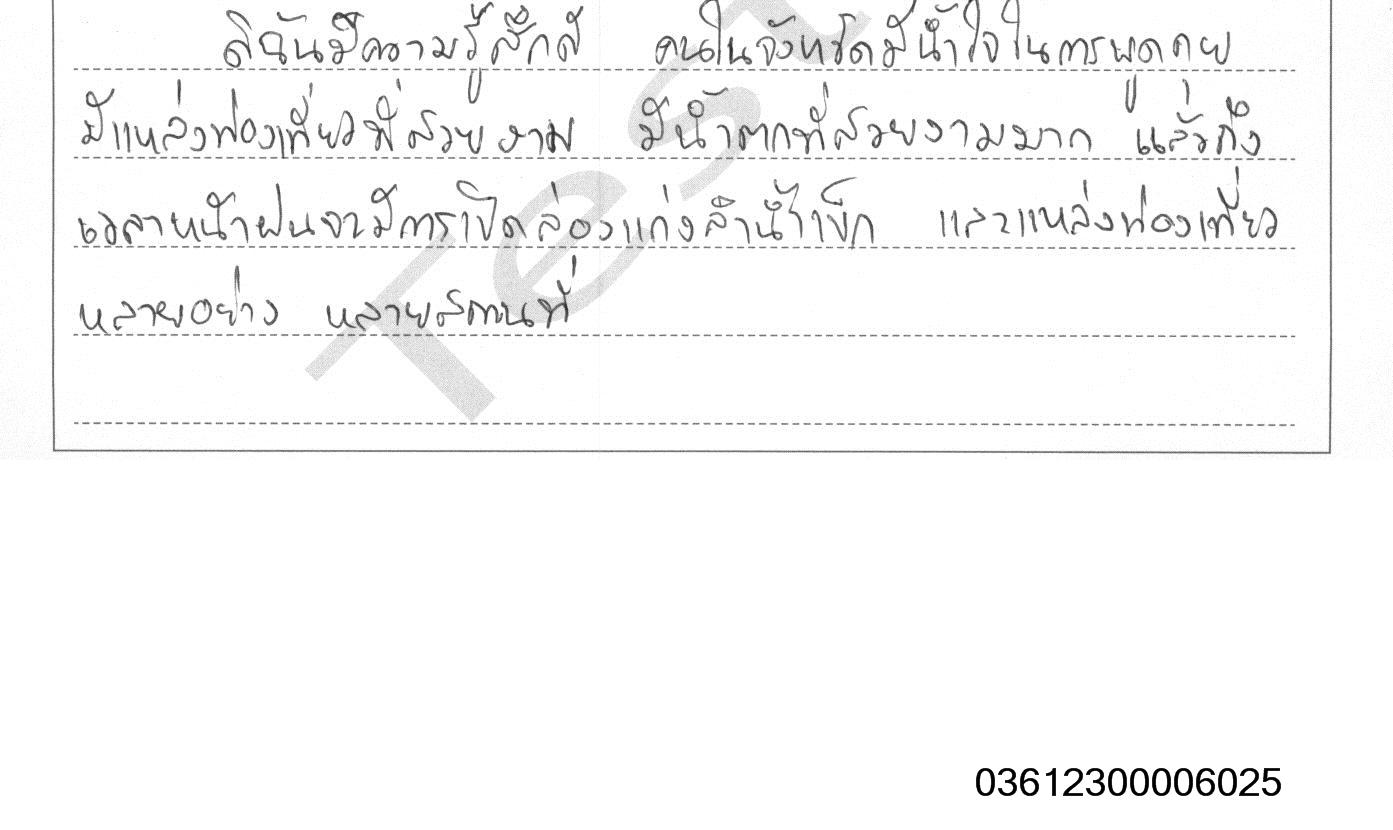 ดิฉันมีความรู้สึกดี คนในจังหวัดมีน้ำใจในการพูดคุย
มีแหล่งท่องเที่ยวที่สวยงาม มีน้ำตกที่สวยงามมาก แล้วถึง
เวลาหน้าฝนจะมีการเปิดล่องแก่งลำน้ำเข็ก และแหล่งท่องเที่ยว
หลายอย่าง หลายสถานที่
Test
03612300006025